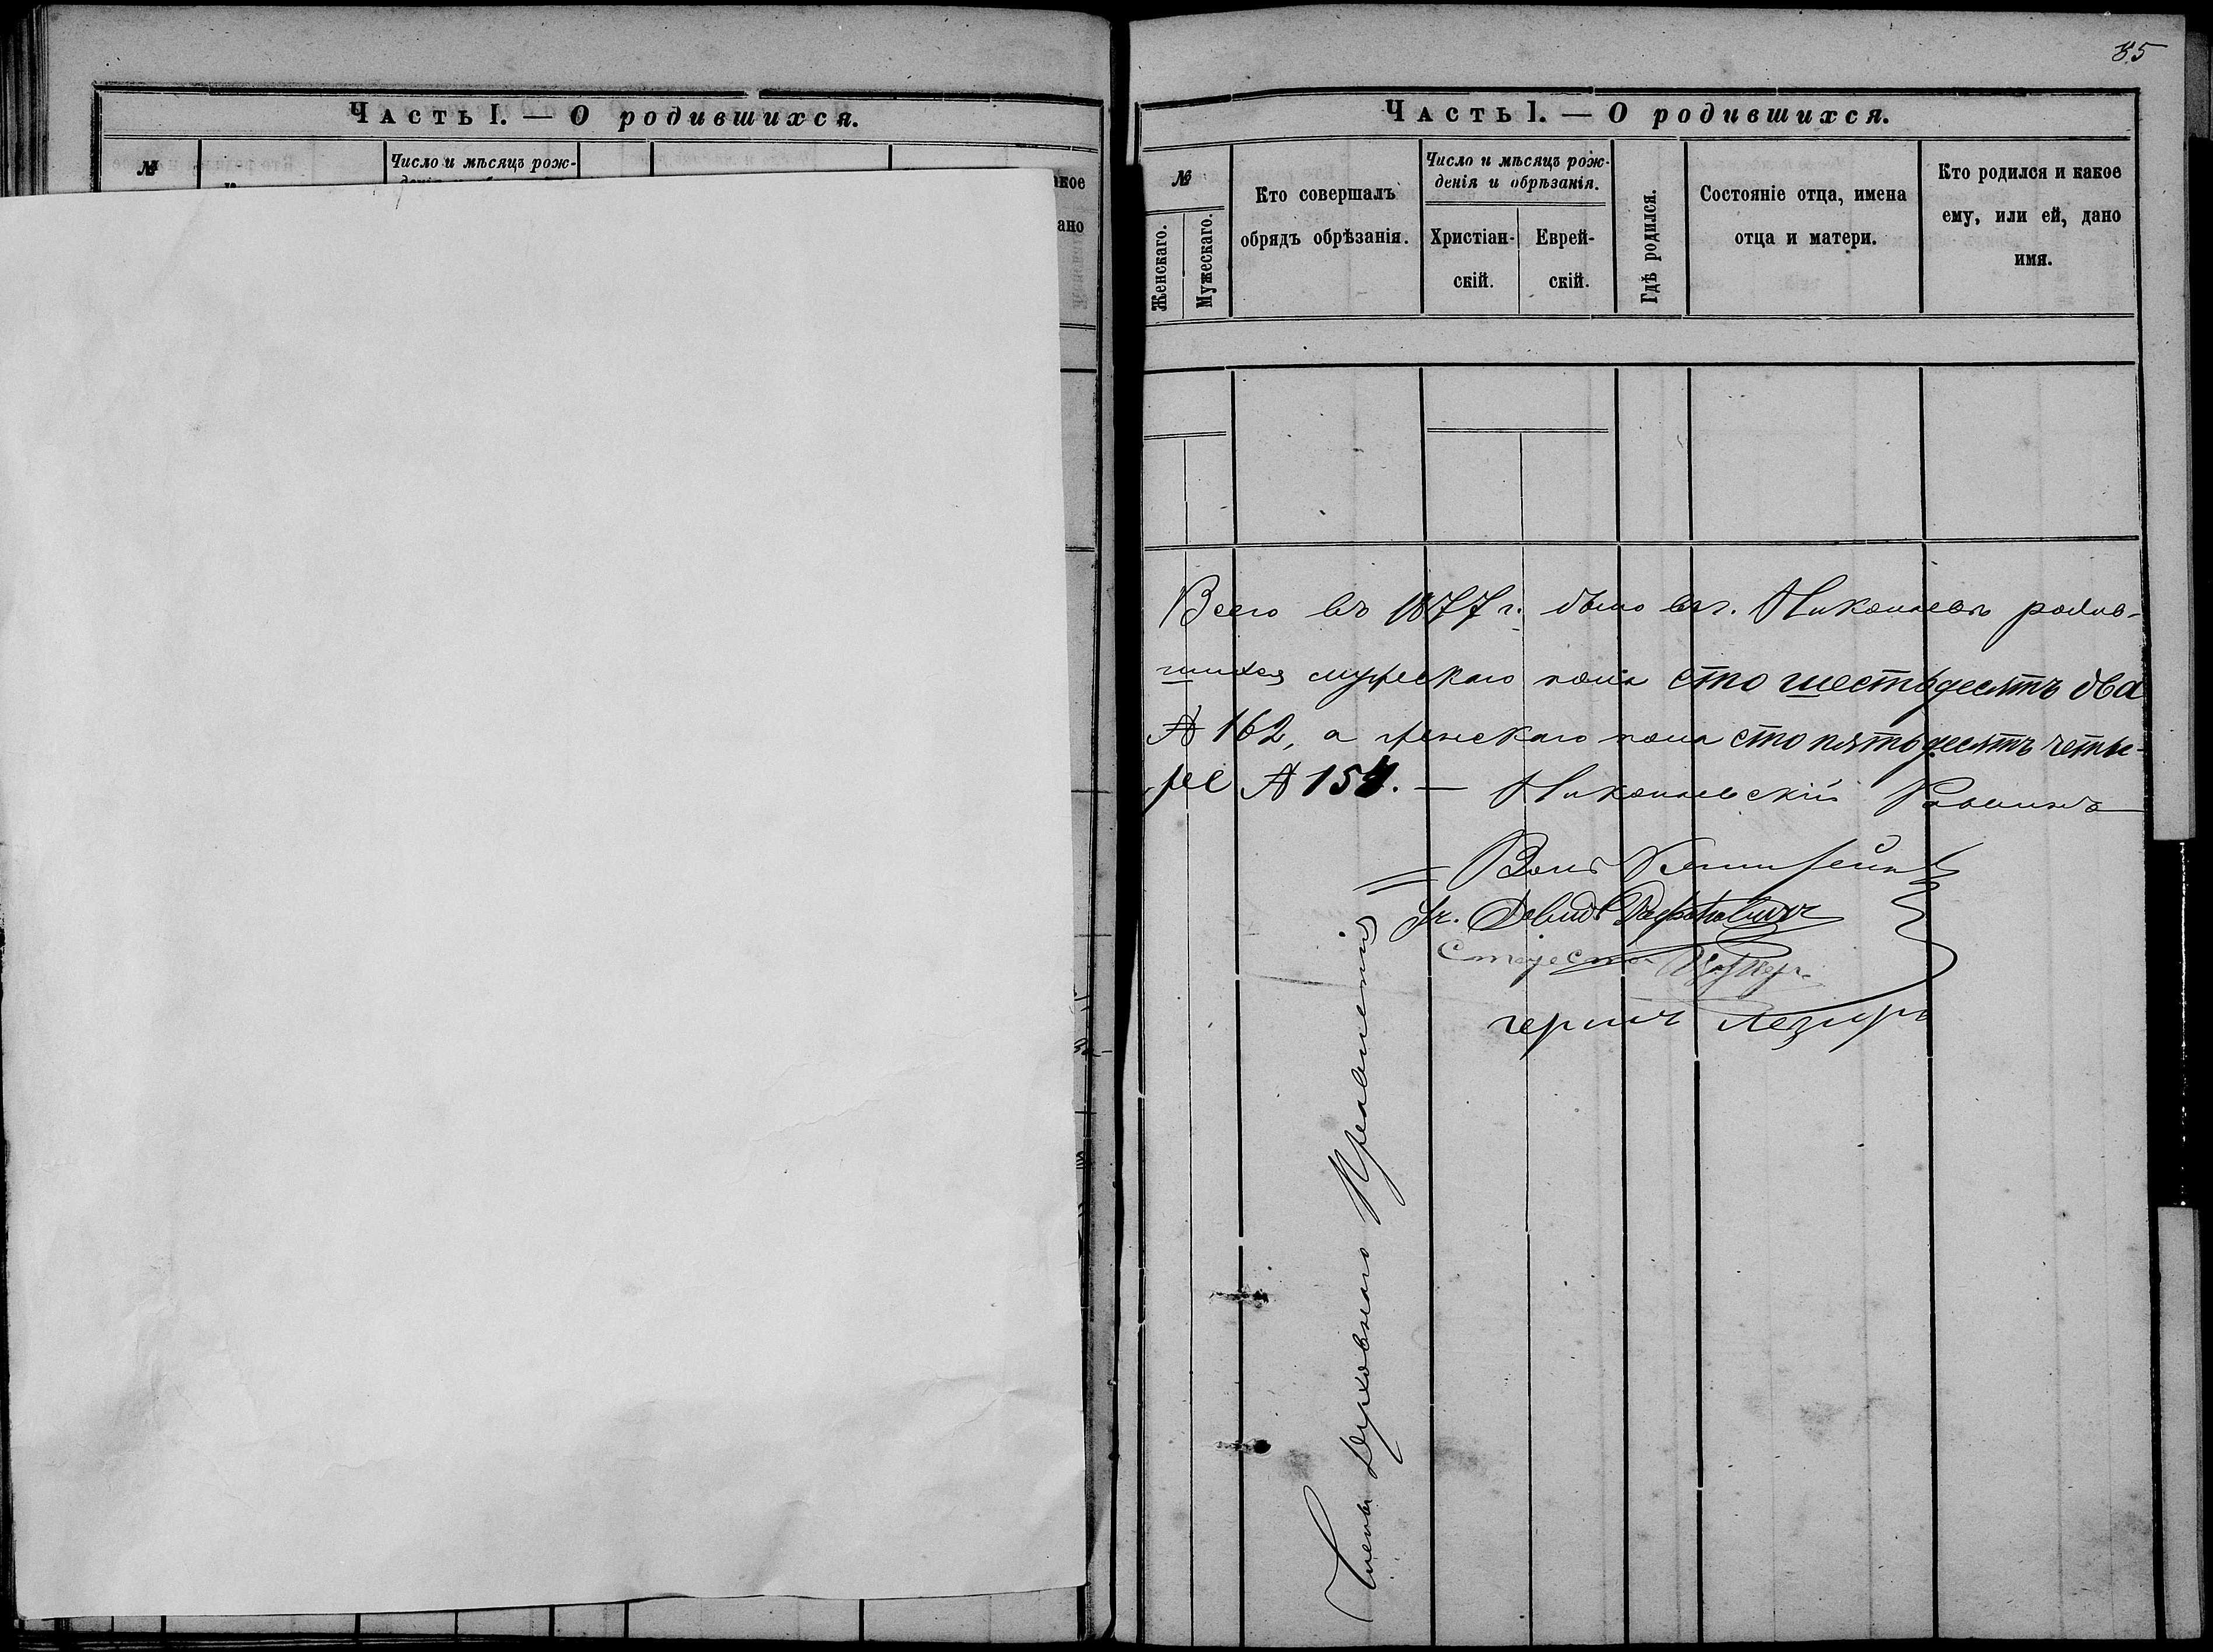 Часть I. — О родившихся.
№
Число и мѣсяцъ рож-
акое
ано
85
Часть I. — О родившихся.
№
Женскаго.
Мужескаго.
Кто совершалъ
обрядъ обрѣзанія.
Число и мѣсяцъ рож-
денія и обрѣзанія.
Христіан-
скій.
Еврей-
скій.
Гдѣ родился.
Состояніе отца, имена
отца и матери.
Кто родился и какое
ему, или ей, дано
имя.
Всего въ 1877 г. было въ г. Николаевѣ родив-
шихся мужескаго пола сто шестьдесятъ два
№ 162, а женскаго пола сто пятьдесятъ четы-
ре № 154. — Николаевскій Раввинъ
Члены Духовнаго Правленія
Давидъ
Староста